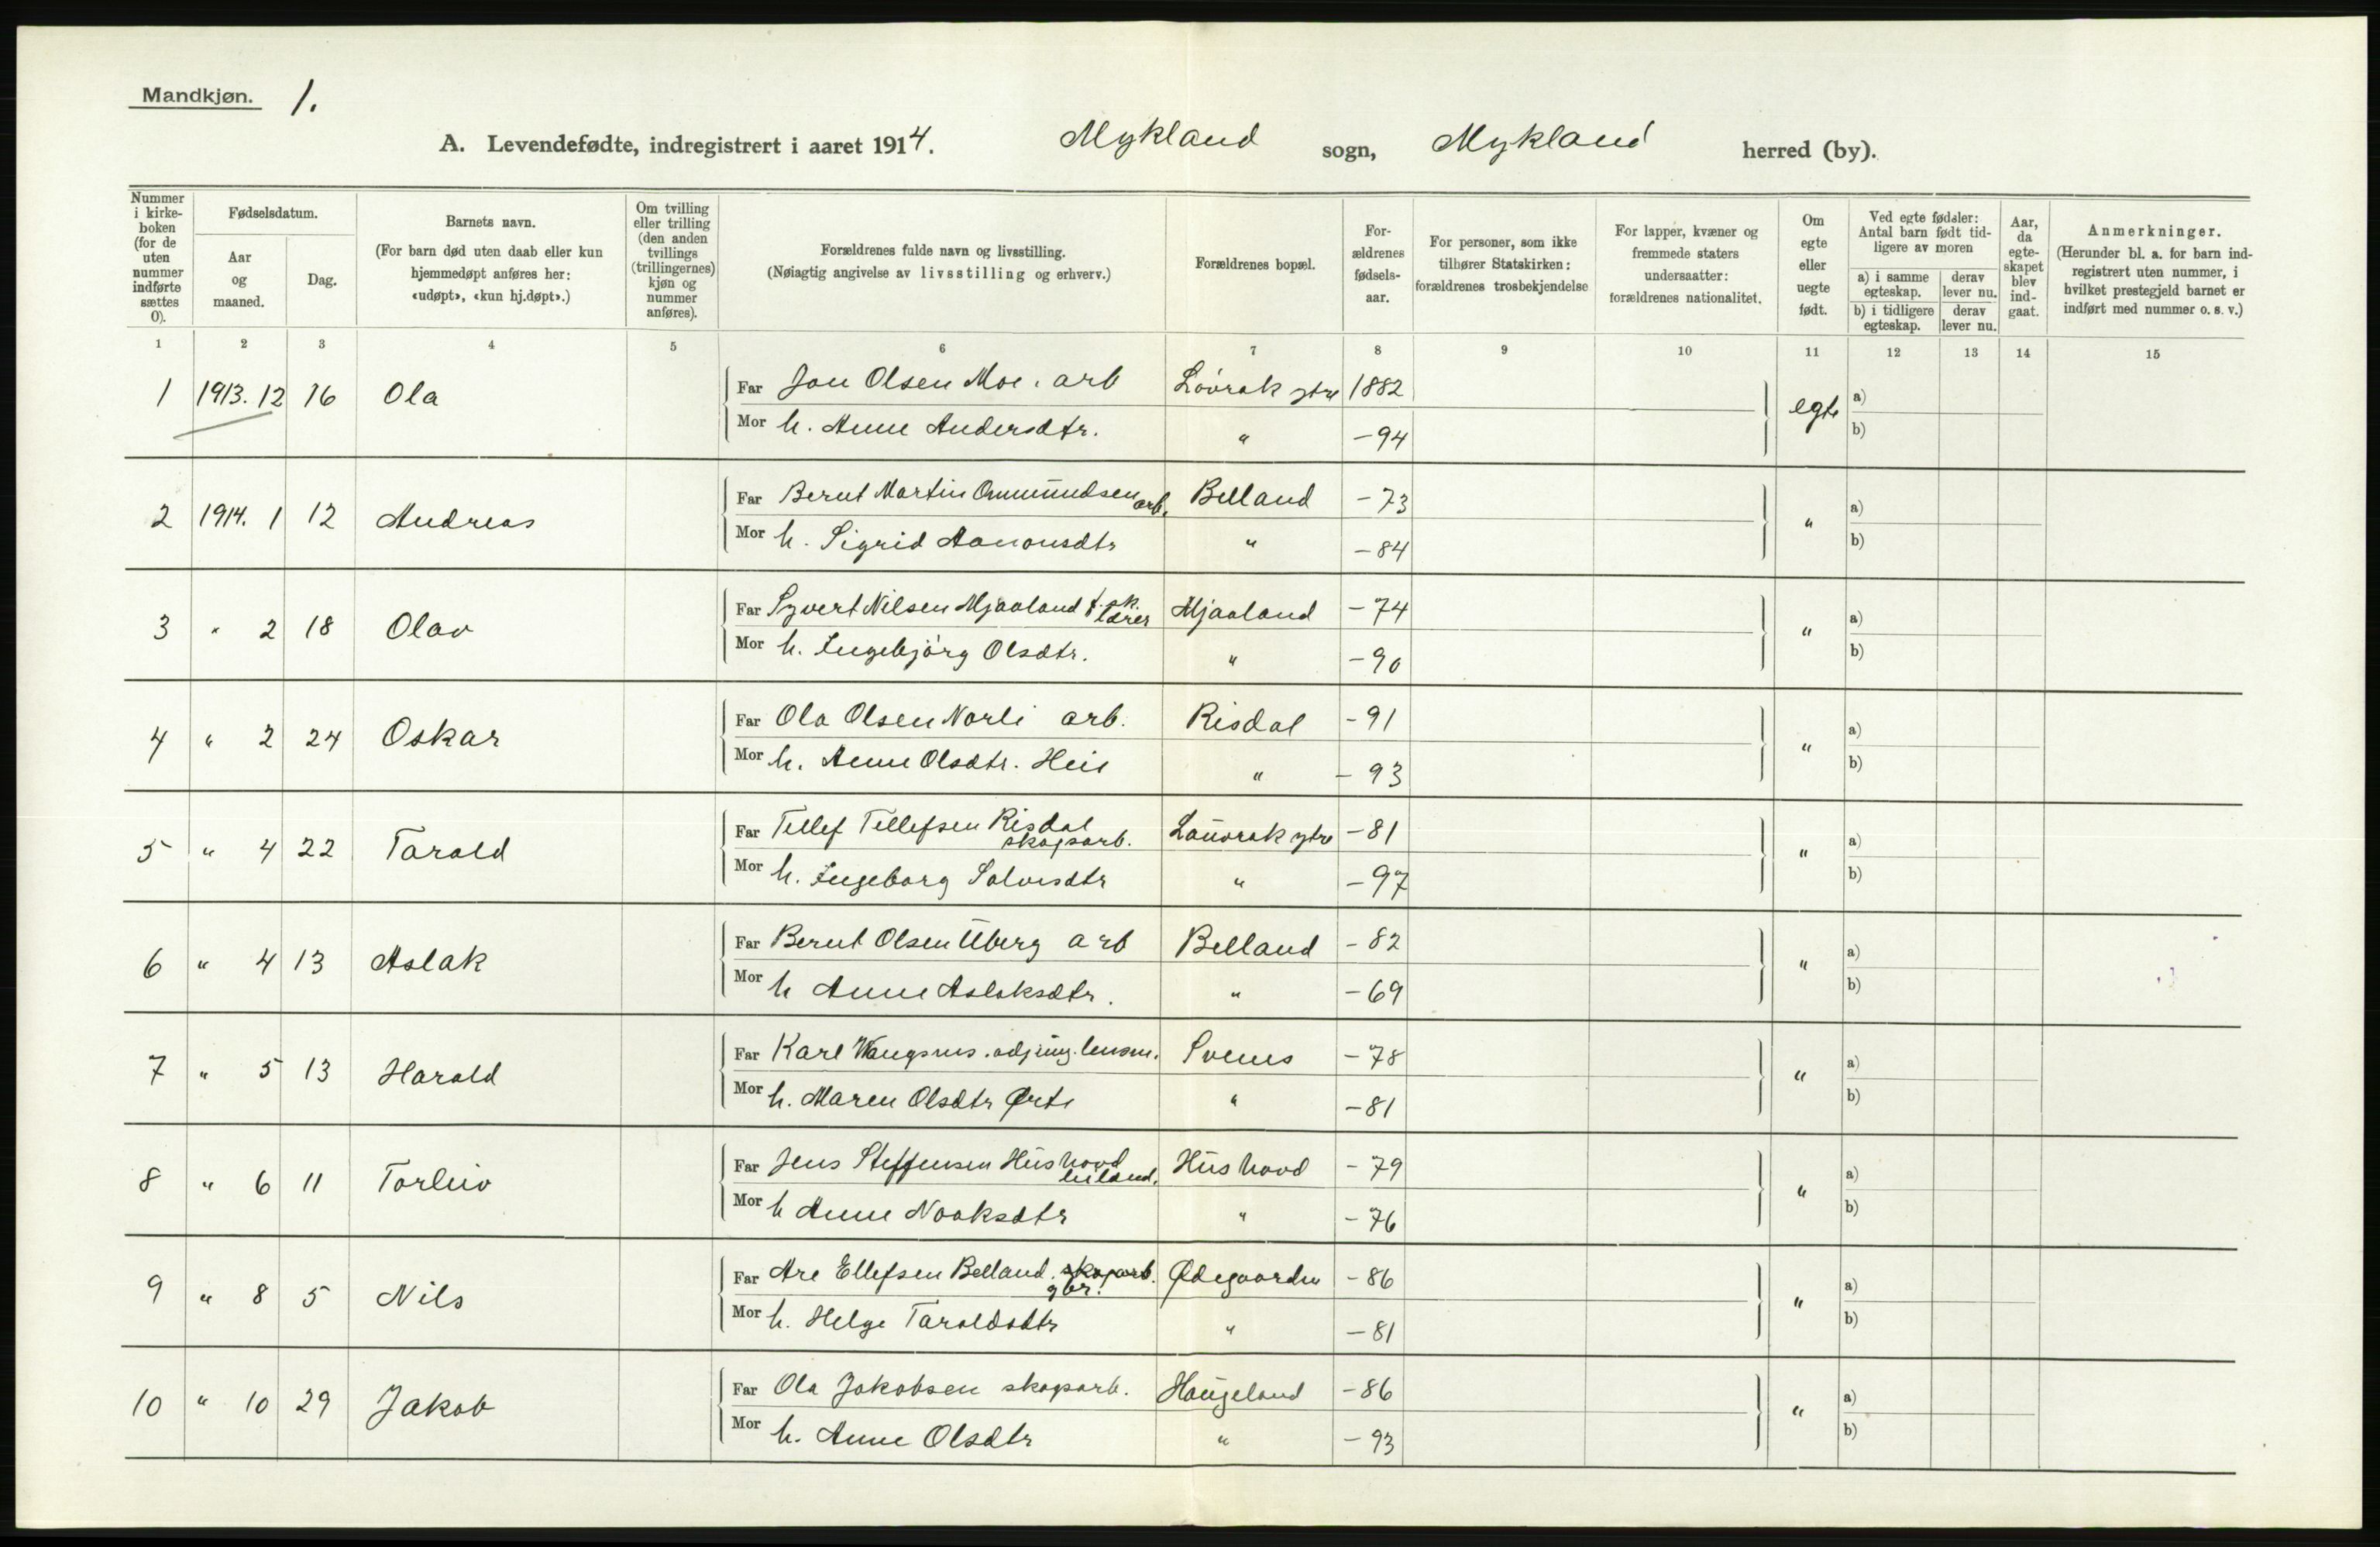 Mandkjøn. 1.
A. Levendefødte, indregistrert i aaret 1914. Mykland sogn, Mykland herred (by).
Nummer i kirke- boken (for de uten nummer indførte sættes 0).
Fødselsdatum.
Aar og maaned.
Dag.
Barnets navn.
(For barn død uten daab eller kun hjemmedøpt anføres her: «udøpt», «kun hj.døpt».)
Om tvilling eller trilling (den anden tvillings (trillingernes) kjøn og nummer anføres).
Forældrenes fulde navn og livsstilling.
(Nøiagtig angivelse av livsstilling og erhverv.)
Forældrenes bopæl.
For- ældrenes fødsels- aar.
For personer, som ikke tilhører Statskirken: forældrenes trosbekjendelse
For lapper, kvæner og fremmede staters undersaatter: forældrenes nationalitet.
Om egte eller uegte født.
Ved egte fødsler: Antal barn født tid- ligere av moren
a) i samme egteskap. derav lever nu.
b) i tidligere egteskap. derav lever nu.
Aar, da egte- skapet blev ind- gaat.
Anmerkninger.
(Herunder bl. a. for barn ind- registrert uten nummer, i hvilket prestegjeld barnet er indført med nummer o. s. v.)
1 2 3 4 5 6 7 8 9 10 11 12 13 14 15
1 1913. 12 16 Ola Far Jon Olsen Moe. arb Lövrak ytre 1882 egte a)
Mor h. Anne Andersdtr. " -94 b)
2 1914. 1 12 Andreas Far Bernt Martin Ommundsen arb. Belland -73 " a)
Mor h. Sigrid Aanonsdtr " -84 b)
3 " 2 18 Olav Far Syvert Nilsen Mjaaland f. sk. lärer Mjaaland -74 " a)
Mor h. Ingebjörg Olsdtr. " -90 b)
4 " 2 24 Oskar Far Ola Olsen Norli arb. Risdal -91 " a)
Mor h. Anne Olsdtr. Heie " -93 b)
5 " 4 22 Tarald Far Tellef Tellefsen Risdal skogsarb. Lauvrak ytre -81 " a)
Mor h. Ingeborg Salvesdtr " -97 b)
6 " 4 13 Aslak Far Bernt Olsen Uberg arb Belland -82 " a)
Mor h Anne Aslaksdtr. " -69 b)
7 " 5 13 Harald Far Karl Vangsnes. adjung. lensm. Svenes -78 " a)
Mor h. Maren Olsdtr " -81 b)
8 " 6 11 Torleiv Far Jens Steffensen Hushovd leiland. Hushovd -79 " a)
Mor h Anne Noaksdtr " -76 b)
9 " 8 5 Nils Far Are Ellefsen Belland. skogarb. gbr. Ødegaarden -86 " a)
Mor h. Helge Taraldsdtr " -81 b)
10 " 10 29 Jakob Far Ola Jakobsen skogarb. Haugeland -86 " a)
Mor h. Anne Olsdtr " -93 b)